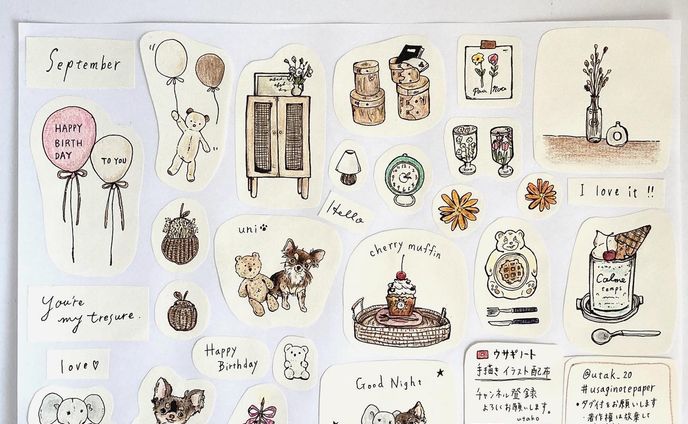 September
HAPPY
BIRTH
DAY
TO YOU
Hello
I love it !!
uni
cherry muffin
Calme
temps
You're
my tresure.
love♡
Happy
Birthday
Good Night
ウサギノート
手描き イラスト配布
チャンネル登録
よろしくお願いします。
utako
@utak_20
#usaginotepaper
・タグ付けお願いします
・著作権は放棄して